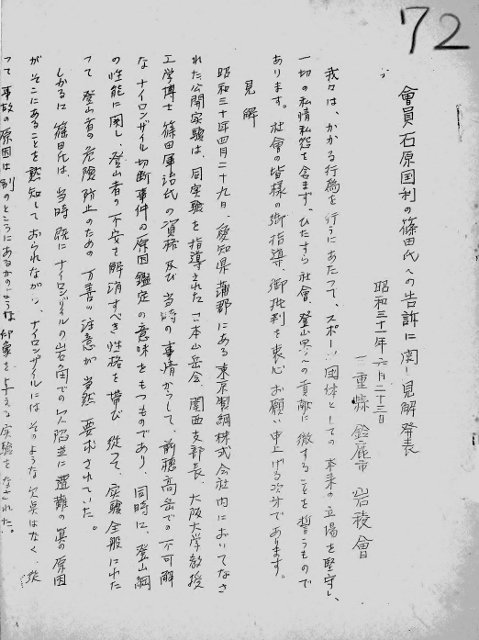 72
會員石原国利の篠田氏への告訴に関し見解発表
昭和三十一年六月二十三日
三重縣鈴鹿市 岩稜會
我々は、かかる行為を行うにあたって、スポーツ団体としての本来の立場を堅守し、
一切の私情私怨を含まず、ひたすら社會、登山界への貢献に徹することを誓うもので
あります。社會の皆様の御指導、御批判を衷心お願い申上げる次第であります。
見解
昭和三十年四月二十九日、愛知県蒲郡にある東京製綱株式会社内においてなさ
れた公開実験は、同実験を指導された日本山岳会、関西支部長、大阪大学教授
工学博士篠田軍治氏の資格及び当時の事情からして、前穂高岳での不可解
な、ナイロンザイル切断事件の原因鑑定の意味をもつものであり、同時に、登山綱
の性能に関し、登山者の不安を解消すべき性格を帯び、従って、実験全般にわた
って登山者の危険防止のための万善の注意が当然要求されていた。
しかるに篠田氏は、当時既にナイロンザイルの岩角での欠陥並に遭難の真の原因
がそこにあることを認知しておられながら、ナイロンザイルにはそのような欠点はなく、従
って事故の原因は別のところにあるかのような印象を与える実験をなされた。